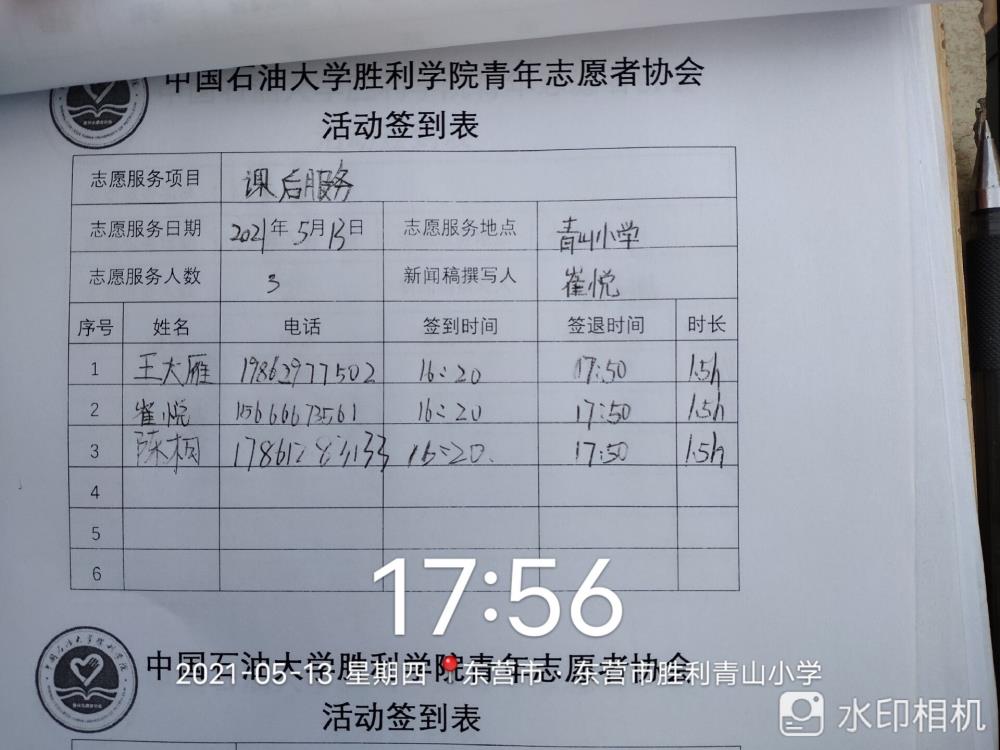 中国石油大学胜利学院青年志愿者协会
活动签到表
志愿服务项目 课后服务
志愿服务日期 2021年5月13日 志愿服务地点 青山小学
志愿服务人数 3 新闻稿撰写人 崔悦
序号 姓名 电话 签到时间 签退时间 时长
1 王大雁 19862977502 16:20 17:50 1.5h
2 崔悦 15666673561 16:20 17:50 1.5h
3 陈桐 16:20. 17:50 1.5h
4
5
6
17:56
中国石油大学胜利学院青年志愿者协会
2021-05-13 星期四 东营市·东营市胜利青山小学
活动签到表
水印相机